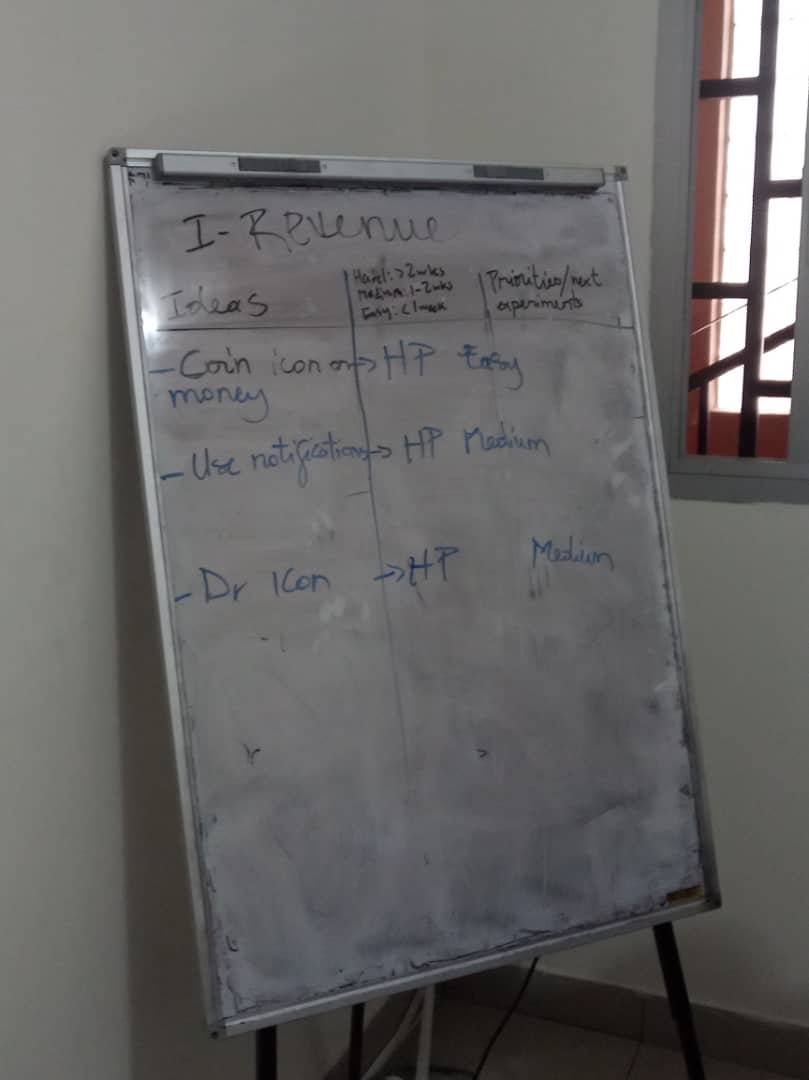 I-Revenue
Ideas
Hard: >2wks
Medium: 1-2wks
Easy: <1week
Priorities/next
experiments
- Coin icon on → HP Easy
money
- Use notifications → HP Medium
- Dr Icon → HP Medium